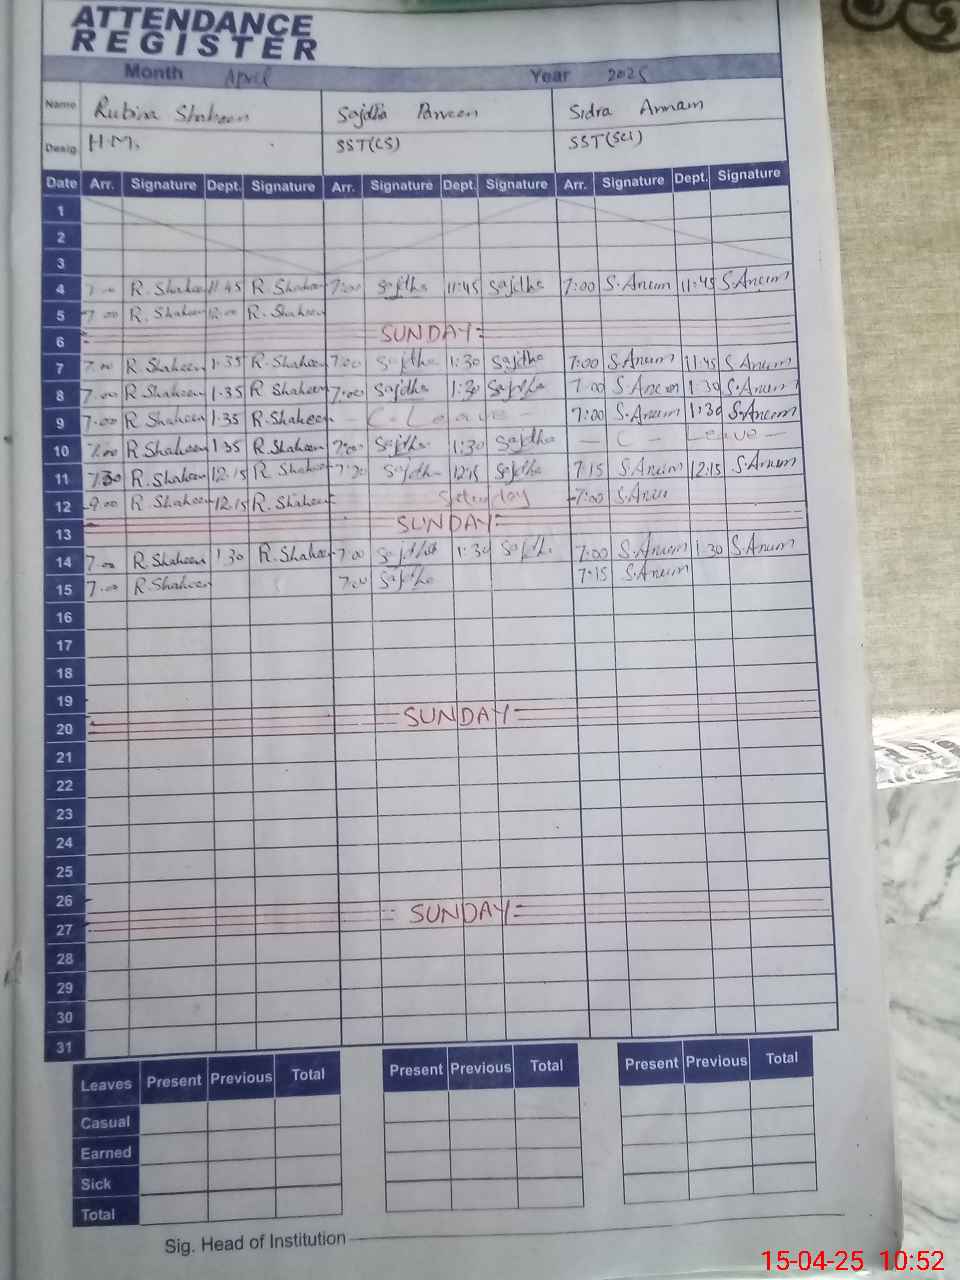 ATTENDANCE
REGISTER
Month April Year 2025
Name Rubina Shaheen Sajdha Parveen Sidra Annam
Desig. H.M. SST(CS) SST(SCI)
Date Arr. Signature Dept. Signature Arr. Signature Dept. Signature Arr. Signature Dept. Signature
1
2
3
4 R.Shaheen 11.45 R.Shaheen 7:00 Sajdha 11:45 Sajdha 7:00 S.Anum 11:45 S.Anum
5 7.00 R.Shaheen 12.00 R.Shaheen
6 SUNDAY
7 7.00 R.Shaheen 1.35 R.Shaheen 7:00 Sajdha 1:30 Sajdha 7:00 S.Anum 11:45 S.Anum
8 7.00 R.Shaheen 1.35 R.Shaheen 7:00 Sajdha 1:30 Sajdha 7:00 S.Anum 1:30 S.Anum
9 7.00 R.Shaheen 1.35 R.Shaheen C-Leave- 7:00 S.Anum 1:30 S.Anum
10 7.00 R.Shaheen 1.35 R.Shaheen 7:00 Sajdha 1:30 Sajdha - C - Leave -
11 7.30 R.Shaheen 12.15 R.Shaheen 7:30 Sajdha 12:15 Sajdha 7:15 S.Anum 12:15 S.Anum
12 9.00 R.Shaheen 12.15 R.Shaheen Saturday 7:00 S.Anum
13 SUNDAY
14 7.00 R.Shaheen 1.30 R.Shaheen 7:00 Sajdha 1:30 Sajdha 7:00 S.Anum 1:30 S.Anum
15 7.00 R.Shaheen 7:00 Sajdha 7:15 S.Anum
16
17
18
19
20 SUNDAY
21
22
23
24
25
26
27 SUNDAY
28
29
30
31
Leaves Present Previous Total Present Previous Total Present Previous Total
Casual
Earned
Sick
Total
Sig. Head of Institution
15-04-25 10:52